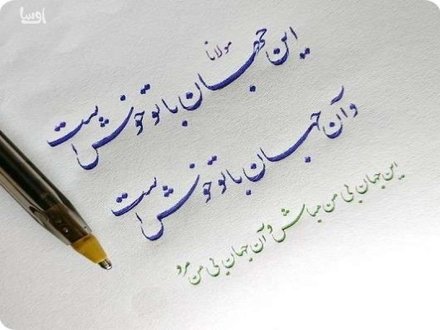 اوسا
مولانا
این جهان با تو خوش است
وآن جهان با تو خوش است
این جهان بی من مباش و آن جهان بی من مرو